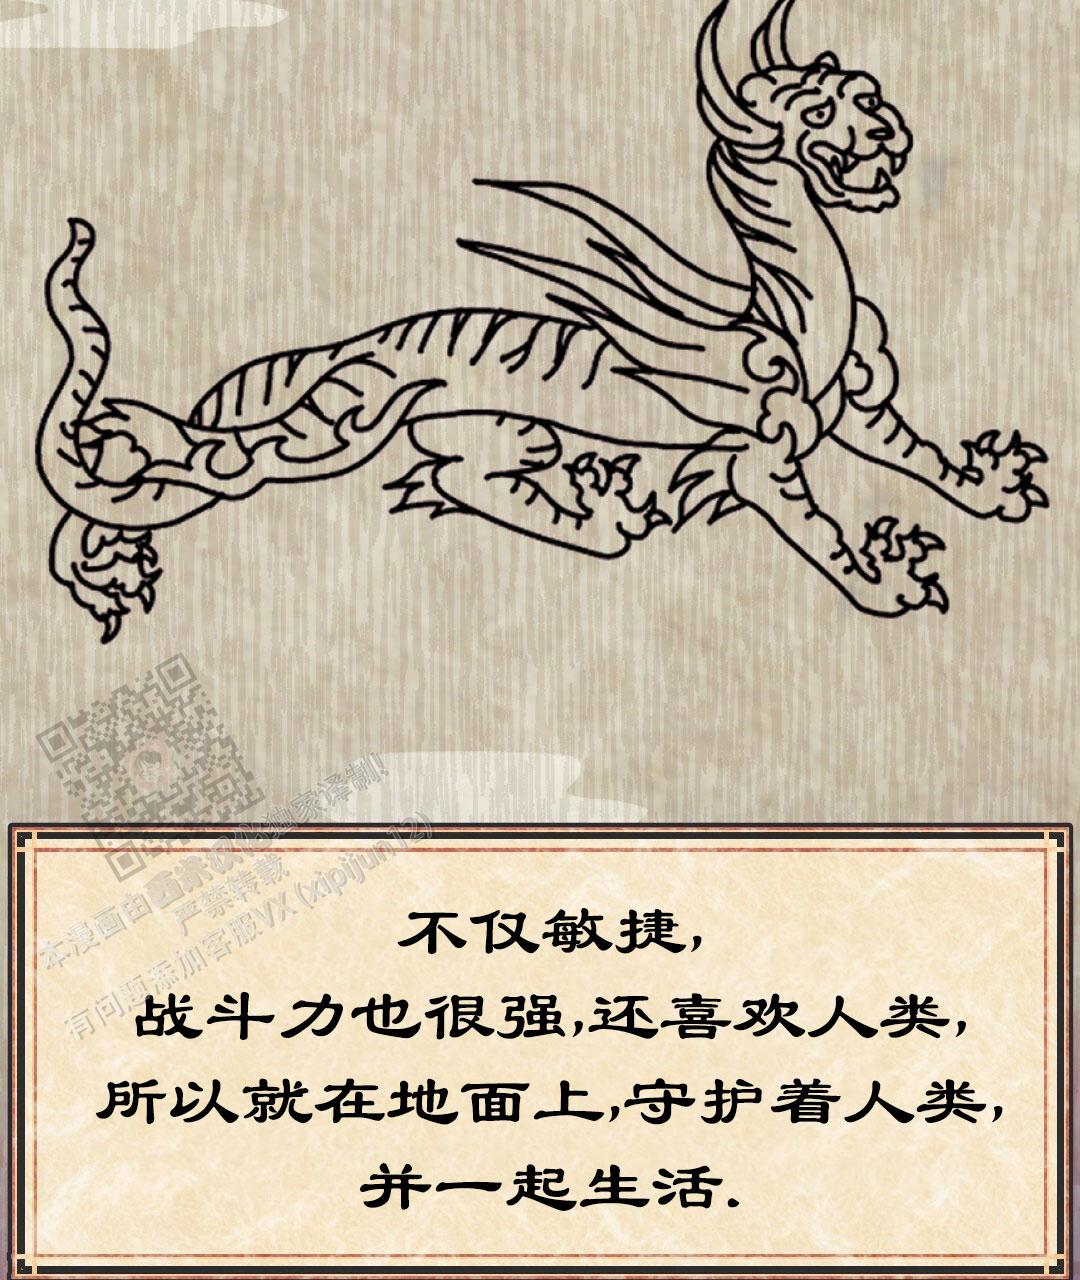 本漫画由西皮汉化独家译制!
严禁转载
有问题添加客服VX (xipijun12)
不仅敏捷,
战斗力也很强,还喜欢人类,
所以就在地面上,守护着人类,
并一起生活.